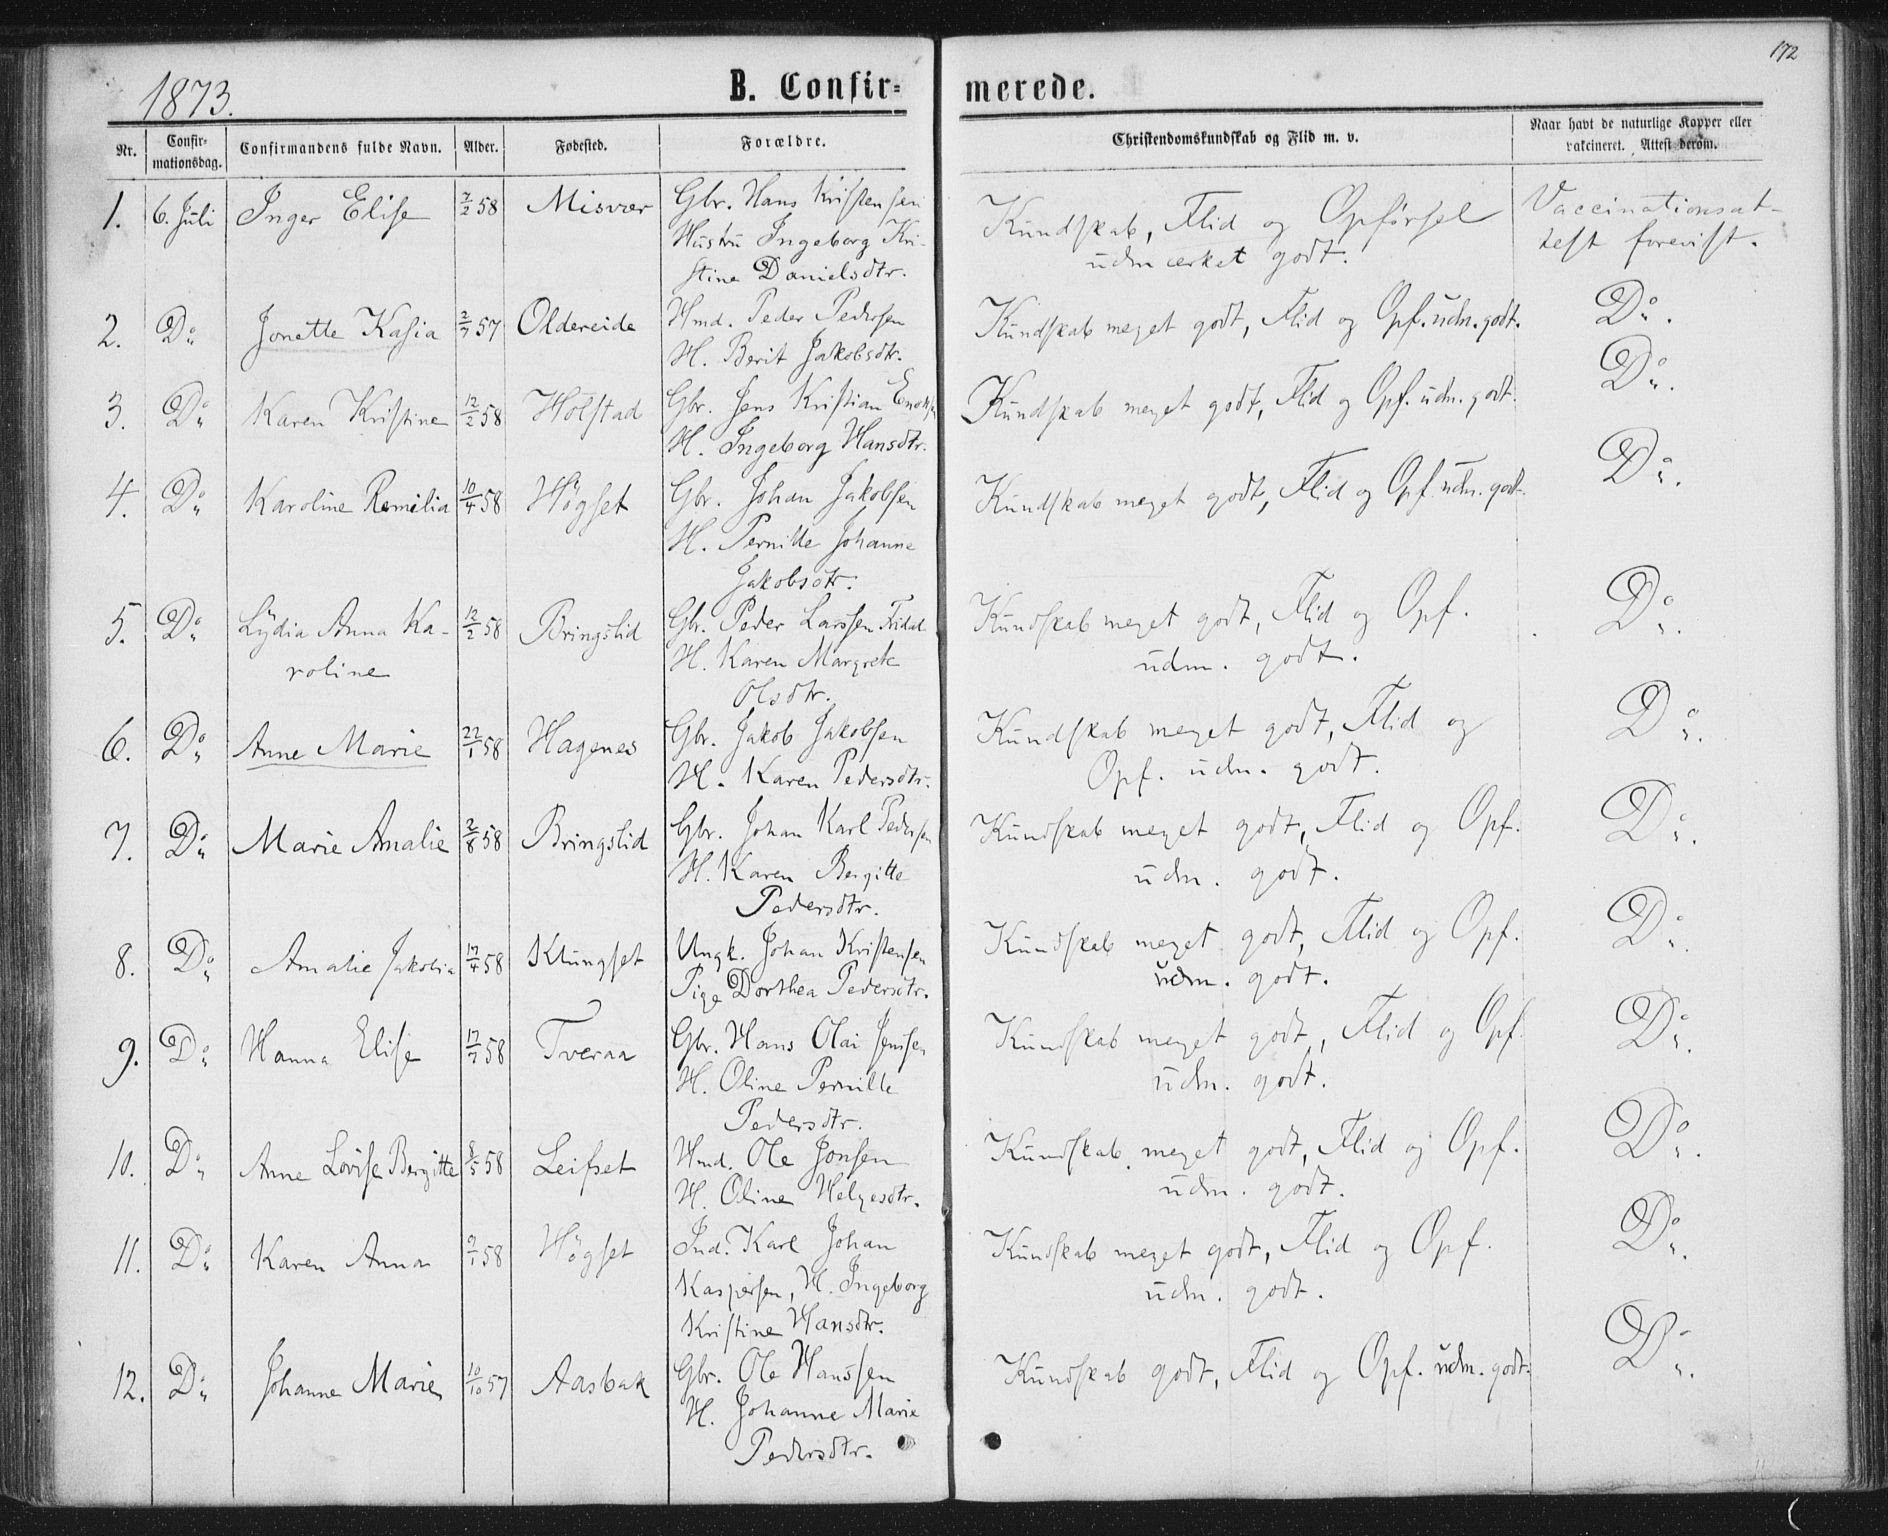 172
1873.
B. Confir-
merede.
Nr.
Confir-
mationsdag.
Confirmandens fulde Navn.
Alder.
Fødested.
Forældre.
Christendomskundskab og Flid m. v.
Naar havt de naturlige Kopper eller
vakcineret. Attest derom.
1. 6. Juli Inger Elise 7/2 58 Misvær Gbr. Hans Kristensen Kundskab, Flid og Opførsel Vaccinationsat-
Hustru Ingeborg Kri- udmærket godt. test forevist.
stine Danielsdtr.
2. Do Jonette Kasia 2/7 57 Oldereide Hmd. Peder Pedersen Kundskab meget godt, Flid og Opf. udm. godt. Do.
H. Berit Jakobsdtr.
3. Do Karen Kristine 12/2 58 Holstad Gbr. Jens Kristian Enoks Kundskab meget godt, Flid og Opf. udm. godt. Do.
H. Ingeborg Hansdtr.
4. Do Karoline Remelia 10/4 58 Høgset Gbr. Johan Jakobsen Kundskab meget godt, Flid og Opf. udm. godt. Do.
H. Pernille Johanne
Jakobsdtr.
5. Do Lydia Anna Ka- 12/2 58 Bringslid Gbr. Peder Larssen Kundskab meget godt, Flid og Opf. Do.
roline H. Karen Margrete udm. godt.
Olsdtr.
6. Do Anne Marie 22/1 58 Hagenes Gbr. Jakob Jakobsen Kundskab meget godt, Flid og Do.
H. Karen Pedersdtr. Opf. udm. godt.
7. Do Marie Amalie 2/8 58 Bringslid Gbr. Johan Karl Pedersen Kundskab meget godt, Flid og Opf. Do.
H. Karen Bergitte udm. godt.
Pedersdtr.
8. Do Amalie Jakobia 17/4 58 Klungset Ungk. Johan Kristensen Kundskab meget godt, Flid og Opf. Do.
Pige Dorthea Pedersdtr. udm. godt.
9. Do Hanna Elise 17/7 58 Tveraa Gbr. Hans Olai Jensen Kundskab meget godt, Flid og Opf. Do.
H. Oline Pernille udm. godt.
Pedersdtr.
10. Do Anne Lovise Bergitte 8/5 58 Leifset Hmd. Ole Jonsen Kundskab meget godt, Flid og Opf. Do.
H. Oline Helgesdtr. udm. godt.
11. Do Karen Anna 9/1 58 Høgset Ind. Karl Johan Kundskab meget godt, Flid og Opf. Do.
Kaspersen, H. Ingeborg udm. godt.
Kristine Hansdtr.
12. Do Johanne Marie 10/10 57 Aasbak Gbr. Ole Hanssen Kundskab godt, Flid og Opf. udm. godt. Do.
H. Johanne Marie
Pedersdtr.